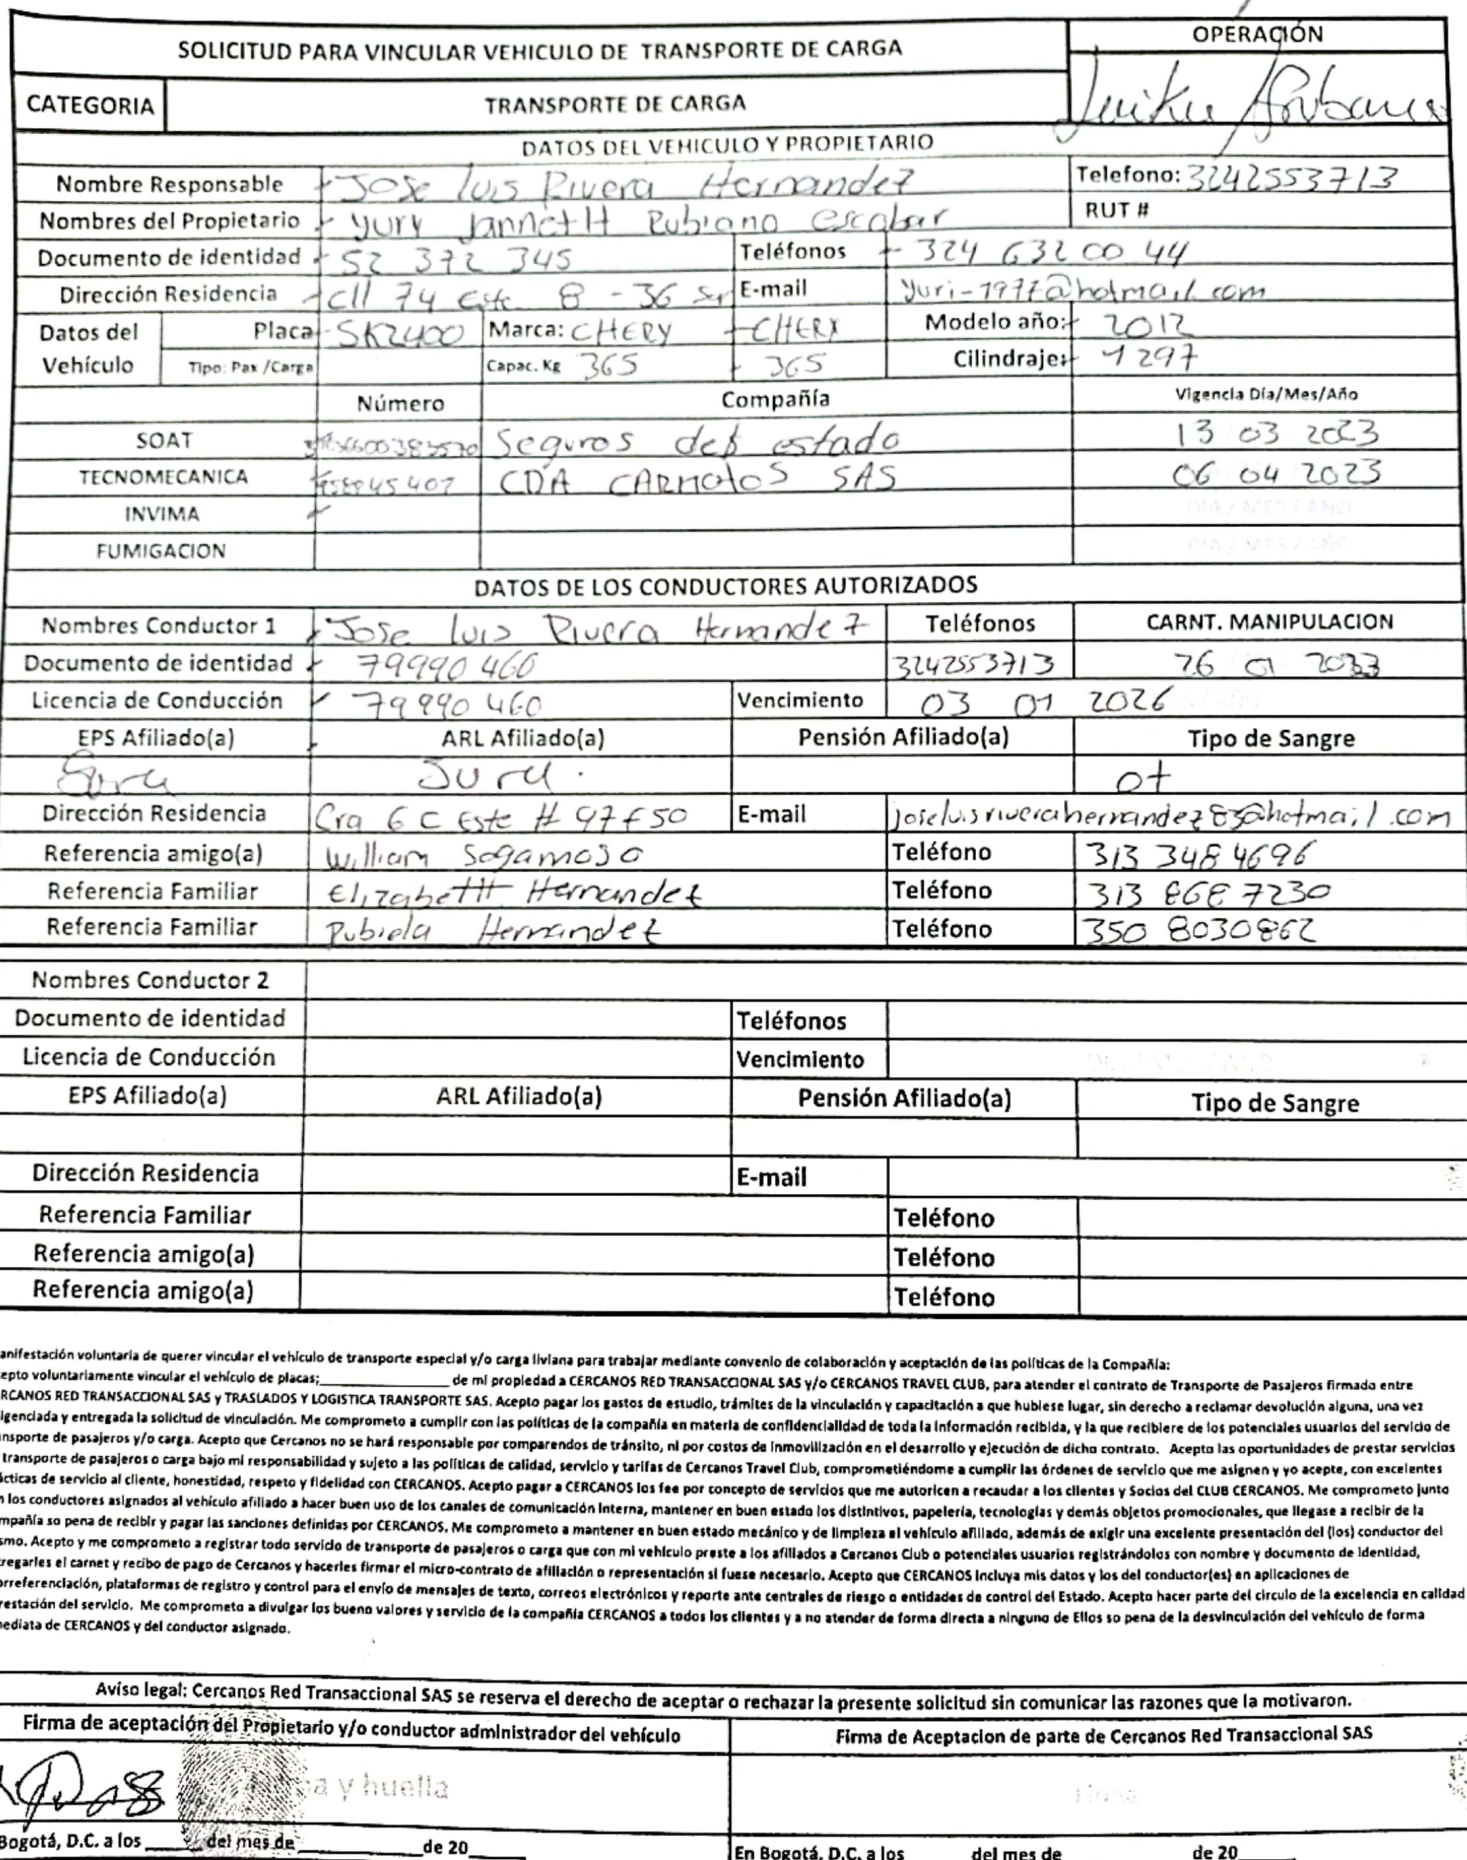 OPERACIÓN
SOLICITUD PARA VINCULAR VEHICULO DE TRANSPORTE DE CARGA
CATEGORIA TRANSPORTE DE CARGA
DATOS DEL VEHICULO Y PROPIETARIO
Nombre Responsable Jose luis Rivera Hernandez Telefono: 3242553713
Nombres del Propietario yury JannetH Rubiano escobar RUT #
Documento de identidad 52 372 345 Teléfonos 324 632 00 44
Dirección Residencia cll 74 Este 8 - 36 sur E-mail yuri-1977@hotmail.com
Datos del Vehículo Placa SKZ400 Marca: CHERY CHERY Modelo año: 2012
Tipo: Pax /Carga Capac. Kg 365 365 Cilindraje: 1297
Número Compañía Vigencia Día/Mes/Año
SOAT Seguros del estado 13 03 2023
TECNOMECANICA CDA CARMOTOS SAS 06 04 2023
INVIMA DIA / MES / AÑO
FUMIGACION DIA / MES / AÑO
DATOS DE LOS CONDUCTORES AUTORIZADOS
Nombres Conductor 1 Jose luis Rivera Hernandez Teléfonos CARNT. MANIPULACION
Documento de identidad 79990460 3242553713 26 01 2023
Licencia de Conducción 79990460 Vencimiento 03 01 2026
EPS Afiliado(a) ARL Afiliado(a) Pensión Afiliado(a) Tipo de Sangre
Sura Sura. O+
Dirección Residencia Cra 6 C Este # 97F50 E-mail joseluisriverahernandez83@hotmail.com
Referencia amigo(a) William Sogamoso Teléfono 313 348 4696
Referencia Familiar ElizabetH Hernandez Teléfono 313 868 7230
Referencia Familiar Rubiela Hernandez Teléfono 350 8030862
Nombres Conductor 2
Documento de identidad Teléfonos
Licencia de Conducción Vencimiento
EPS Afiliado(a) ARL Afiliado(a) Pensión Afiliado(a) Tipo de Sangre
Dirección Residencia E-mail
Referencia Familiar Teléfono
Referencia amigo(a) Teléfono
Referencia amigo(a) Teléfono
anifestación voluntaria de querer vincular el vehículo de transporte especial y/o carga liviana para trabajar mediante convenio de colaboración y aceptación de las políticas de la Compañía:
epto voluntariamente vincular el vehículo de placas;____________ de mi propiedad a CERCANOS RED TRANSACCIONAL SAS y/o CERCANOS TRAVEL CLUB, para atender el contrato de Transporte de Pasajeros firmado entre
RCANOS RED TRANSACCIONAL SAS y TRASLADOS Y LOGISTICA TRANSPORTE SAS. Acepto pagar los gastos de estudio, trámites de la vinculación y capacitación a que hubiese lugar, sin derecho a reclamar devolución alguna, una vez
lgenciada y entregada la solicitud de vinculación. Me comprometo a cumplir con las políticas de la compañía en materia de confidencialidad de toda la información recibida, y la que recibiere de los potenciales usuarios del servicio de
nsporte de pasajeros y/o carga. Acepto que Cercanos no se hará responsable por comparendos de tránsito, ni por costos de inmovilización en el desarrollo y ejecución de dicho contrato. Acepto las oportunidades de prestar servicios
transporte de pasajeros o carga bajo mi responsabilidad y sujeto a las políticas de calidad, servicio y tarifas de Cercanos Travel Club, comprometiéndome a cumplir las órdenes de servicio que me asignen y yo acepte, con excelentes
ácticas de servicio al cliente, honestidad, respeto y fidelidad con CERCANOS. Acepto pagar a CERCANOS los fee por concepto de servicios que me autoricen a recaudar a los clientes y Socios del CLUB CERCANOS. Me comprometo junto
n los conductores asignados al vehículo afiliado a hacer buen uso de los canales de comunicación interna, mantener en buen estado los distintivos, papelería, tecnologías y demás objetos promocionales, que llegase a recibir de la
mpañía so pena de recibir y pagar las sanciones definidas por CERCANOS. Me comprometo a mantener en buen estado mecánico y de limpieza el vehículo afiliado, además de exigir una excelente presentación del (los) conductor del
smo. Acepto y me comprometo a registrar todo servicio de transporte de pasajeros o carga que con mi vehículo preste a los afiliados a Cercanos Club o potenciales usuarios registrándolos con nombre y documento de identidad,
tregarles el carnet y recibo de pago de Cercanos y hacerles firmar el micro-contrato de afiliación o representación si fuese necesario. Acepto que CERCANOS incluya mis datos y los del conductor(es) en aplicaciones de
orreferenciación, plataformas de registro y control para el envío de mensajes de texto, correos electrónicos y reporte ante centrales de riesgo o entidades de control del Estado. Acepto hacer parte del circulo de la excelencia en calidad
restación del servicio. Me comprometo a divulgar los bueno valores y servicio de la compañía CERCANOS a todos los clientes y a no atender de forma directa a ninguno de Ellos so pena de la desvinculación del vehículo de forma
nediata de CERCANOS y del conductor asignado.
Aviso legal: Cercanos Red Transaccional SAS se reserva el derecho de aceptar o rechazar la presente solicitud sin comunicar las razones que la motivaron.
Firma de aceptación del Propietario y/o conductor administrador del vehículo Firma de Aceptacion de parte de Cercanos Red Transaccional SAS
y huella Firma
Bogotá, D.C. a los ____ del mes de ________ de 20____ En Bogotá, D.C. a los ____ del mes de ________ de 20____